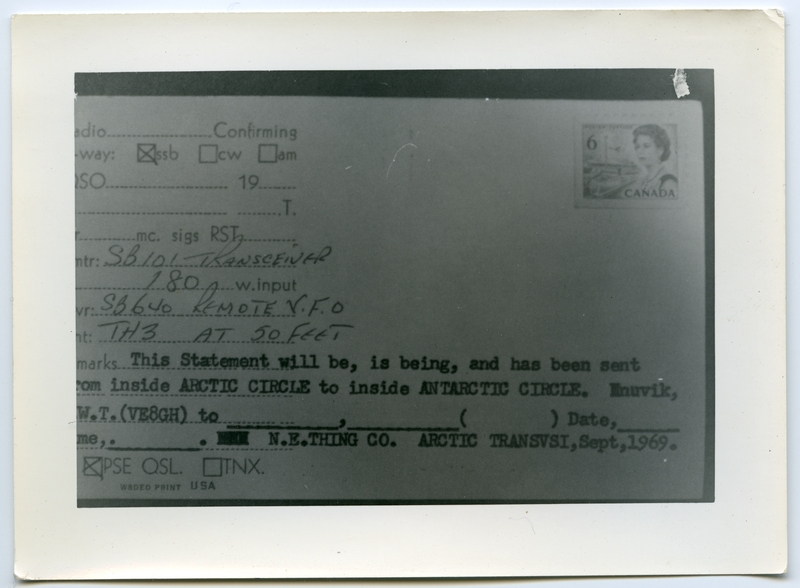 adio Confirming
-way: ☒ssb ☐cw ☐am
QSO 19
T.
r mc. sigs RST
mtr: SB101 TRANSCEIVER
180 w.input
vr: SB640 REMOTE V.F.O
nt: TH3 AT 50 FEET
marks This Statement will be, is being, and has been sent
rom inside ARCTIC CIRCLE to inside ANTARCTIC CIRCLE. Enuvik,
W.T.(VE8GH) to , ( ) Date,
me,. . N.E.THING CO. ARCTIC TRANSVSI,Sept,1969.
☒PSE QSL. ☐TNX.
PRINT USA
6
CANADA